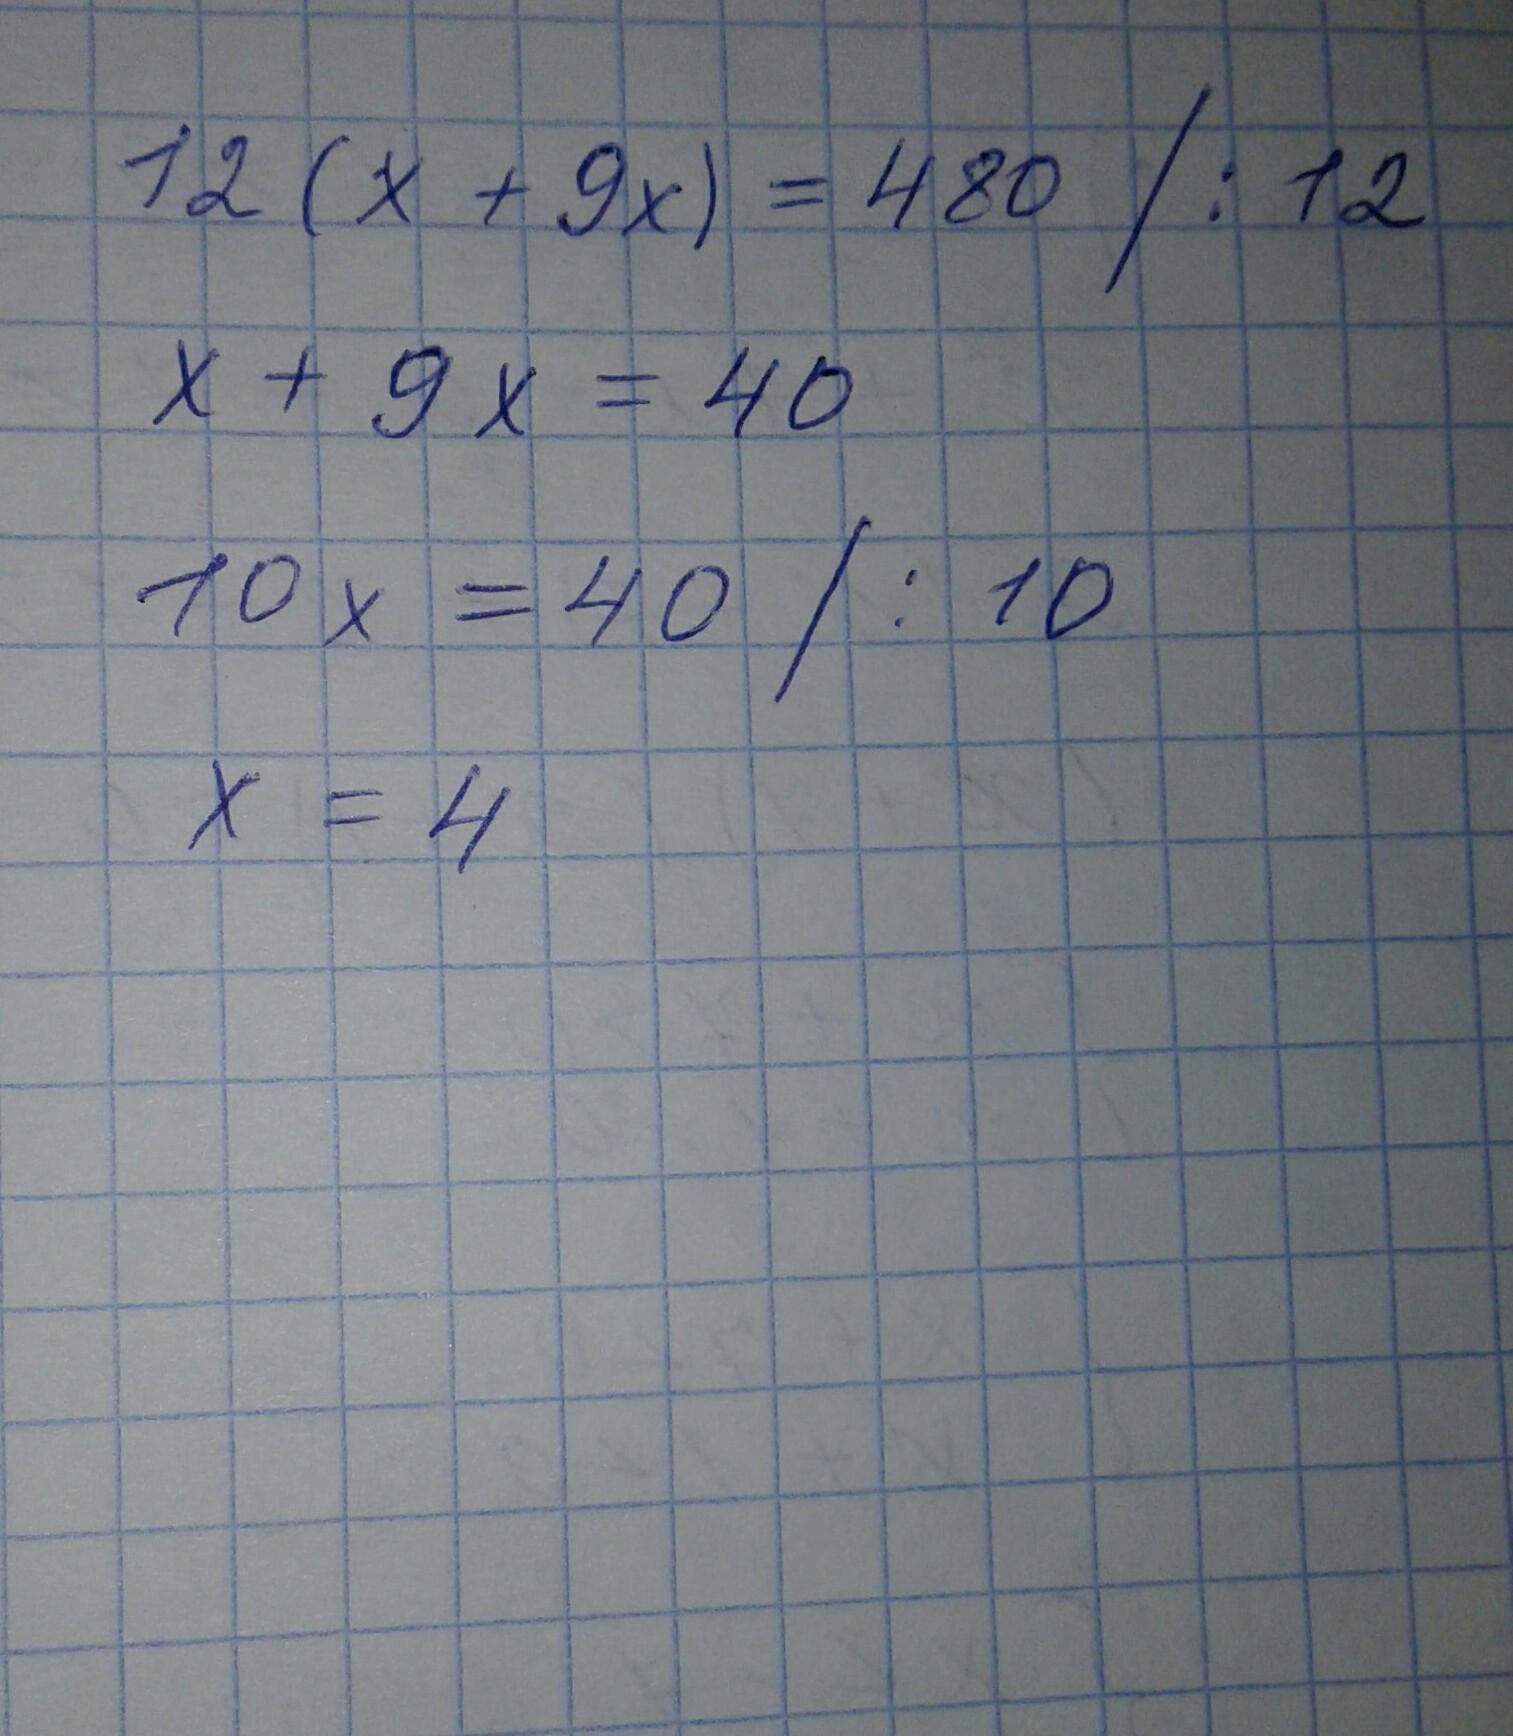 12 (x + 9x) = 480 / : 12
x + 9x = 40
10x = 40 / : 10
x = 4